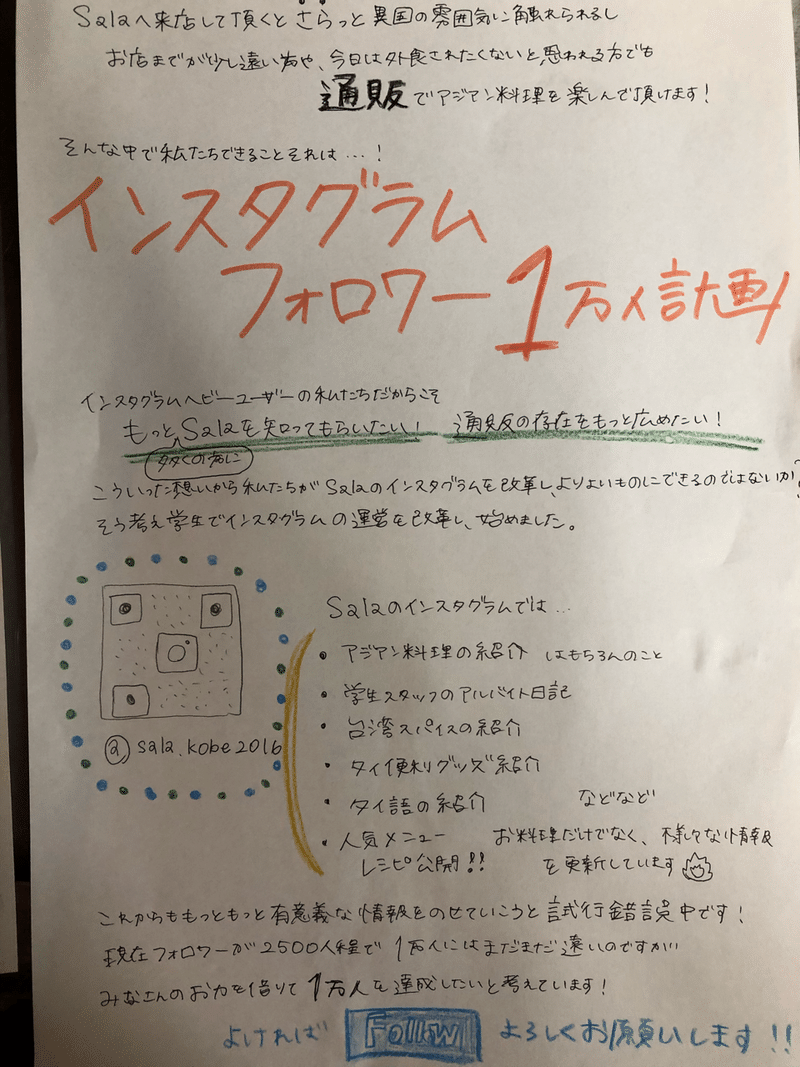 Salaへ来店して頂くとさらっと異国の雰囲気に触れられるし
お店までが少し遠い方や、今日は外食されたくないと思われる方でも
通販でアジアン料理を楽しんで頂けます!
そんな中で私たちできることそれは…!
インスタグラム
フォロワー1万人計画
インスタグラムヘビーユーザーの私たちだからこそ
もっとSalaを知ってもらいたい! 通販の存在をもっと広めたい!
多くの方に
こういった想いから私たちがSalaのインスタグラムを改革し、よりよいものにできるのではないか?
そう考え学生でインスタグラムの運営を改革し、始めました。
Salaのインスタグラムでは…
• アジアン料理の紹介 はもちろんのこと
• 学生スタッフのアルバイト日記
• 台湾スパイスの紹介
• タイ便利グッズ紹介
• タイ語の紹介 などなど
• 人気メニュー お料理だけでなく、様々な情報
レシピ公開!! を更新しています
@sala.kobe2016
これからももっともっと有意義な情報をのせていこうと試行錯誤中です!
現在フォロワーが2500人程で1万人にはまだまだ遠いのですが…
みなさんのお力を借りて1万人を達成したいと考えています!
よければ Follow よろしくお願いします!!